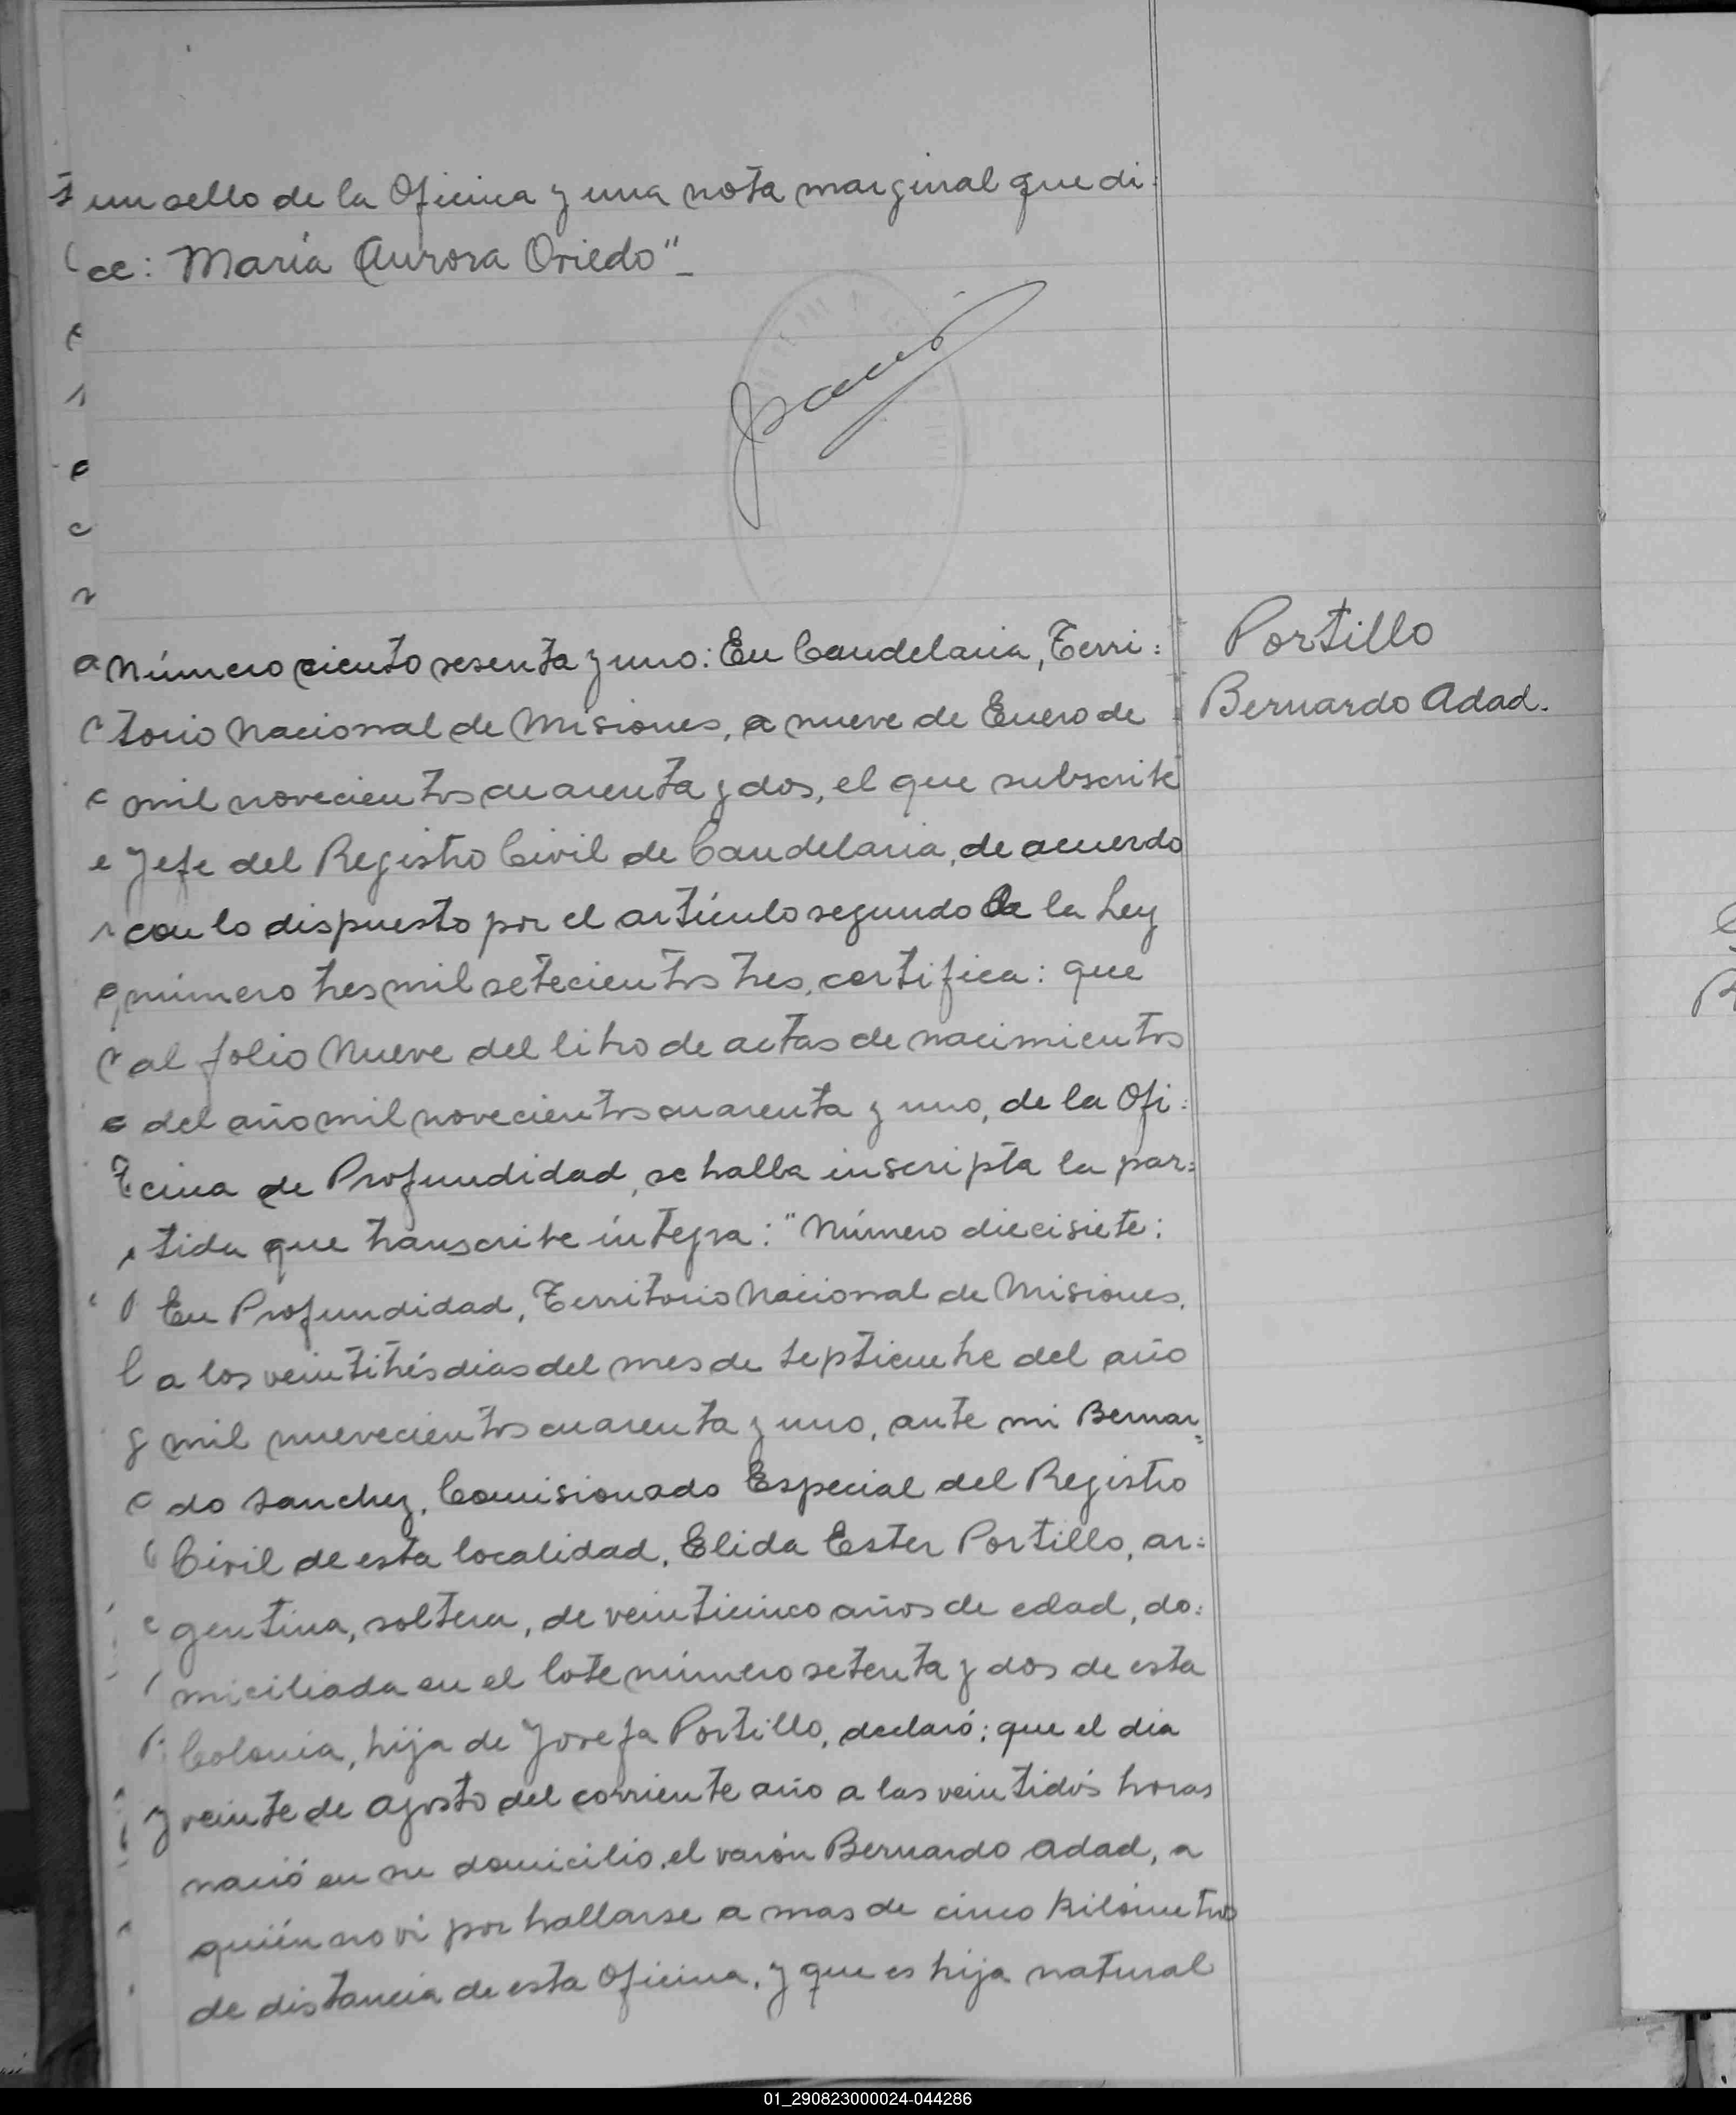 un sello de la Oficina y una nota marginal que di=
ce: María Aurora Oviedo"_
Número ciento sesenta y uno: En Candelaria, Terri=
torio Nacional de Misiones, a nueve de Enero de
mil novecientos cuarenta y dos, el que subscribe
Jefe del Registro Civil de Candelaria, de acuerdo
con lo dispuesto por el artículo segundo de la Ley
número tres mil setecientos tres, certifica: que
al folio Nueve del libro de actas de nacimientos
del año mil novecientos cuarenta y uno, de la Ofi=
cina de Profundidad, se halla inscripta la par=
tida que transcribe íntegra: "Número diecisiete:
En Profundidad, Territorio Nacional de Misiones,
a los veintitrés dias del mes de Septiembre del año
mil nuevecientos cuarenta y uno, ante mi Bernar=
do Sanchez, Comisionado Especial del Registro
Civil de esta localidad, Elida Ester Portillo, ar=
gentina, soltera, de veinticinco años de edad, do=
miciliada en el lote número setenta y dos de esta
Colonia, hija de Josefa Portillo, declaró: que el dia
veinte de Agosto del corriente año a las veintidós horas
nació en su domicilio, el varón Bernardo Adad, a
quién no vi por hallarse a mas de cinco kilómetros
de distancia de esta Oficina, y que es hija natural
Portillo
Bernardo Adad.
01_290823000024-044286